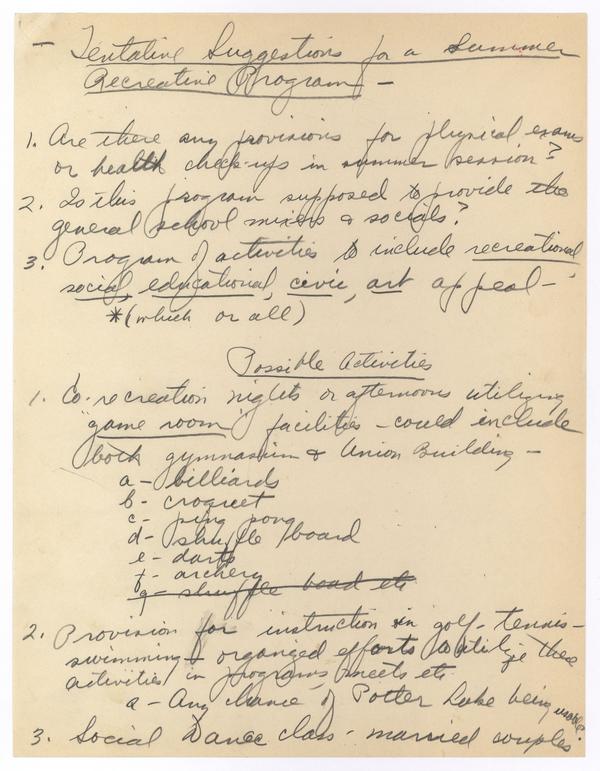 - Tentative Suggestions for a Summer
Recreative Program -
1. Are there any provisions for physical exams
or health check-ups in summer session?
2. Is this program supposed to provide the
general school mixers & socials?
3. Program of activities to include recreational,
social, educational, civic, art appeal -
*(which or all)
Possible Activities
1. Co-recreation nights or afternoons utilizing
"game room" facilities - could include
both gymnasium & Union Building -
a - billiards
b - croquet
c - ping pong
d - shuffle board
e - darts
f - archery
g - shuffle board etc
2. Provision for instruction in golf - tennis -
swimming & organized efforts to utilize these
activities in programs, meets etc
a - Any chance of Potter Lake being usable?
3. Social Dance class - married couples